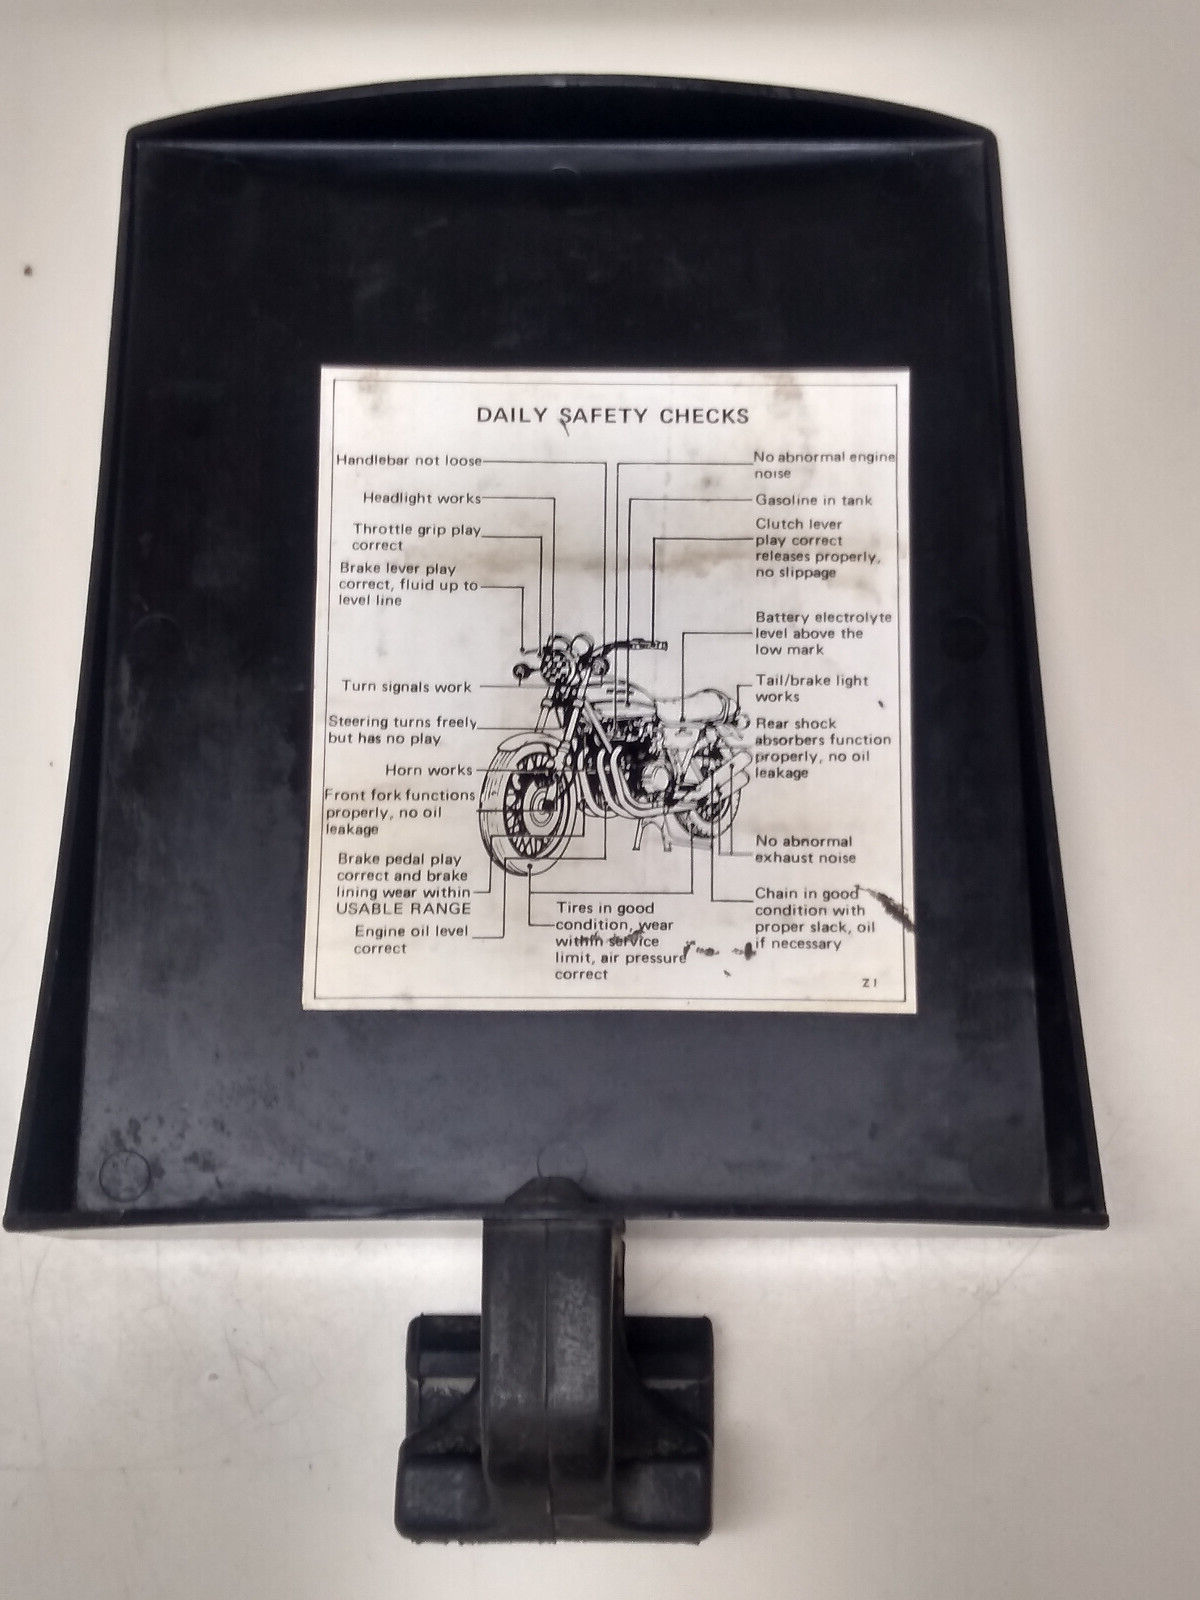 DAILY SAFETY CHECKS
Handlebar not loose
Headlight works
Throttle grip play
correct
Brake lever play
correct, fluid up to
level line
Turn signals work
Steering turns freely
but has no play
Horn works
Front fork functions
properly, no oil
leakage
Brake pedal play
correct and brake
lining wear within
USABLE RANGE
Engine oil level
correct
Tires in good
condition, wear
within service
limit, air pressure
correct
No abnormal engine
noise
Gasoline in tank
Clutch lever
play correct
releases properly,
no slippage
Battery electrolyte
level above the
low mark
Tail/brake light
works
Rear shock
absorbers function
properly, no oil
leakage
No abnormal
exhaust noise
Chain in good
condition with
proper slack, oil
if necessary
Z1